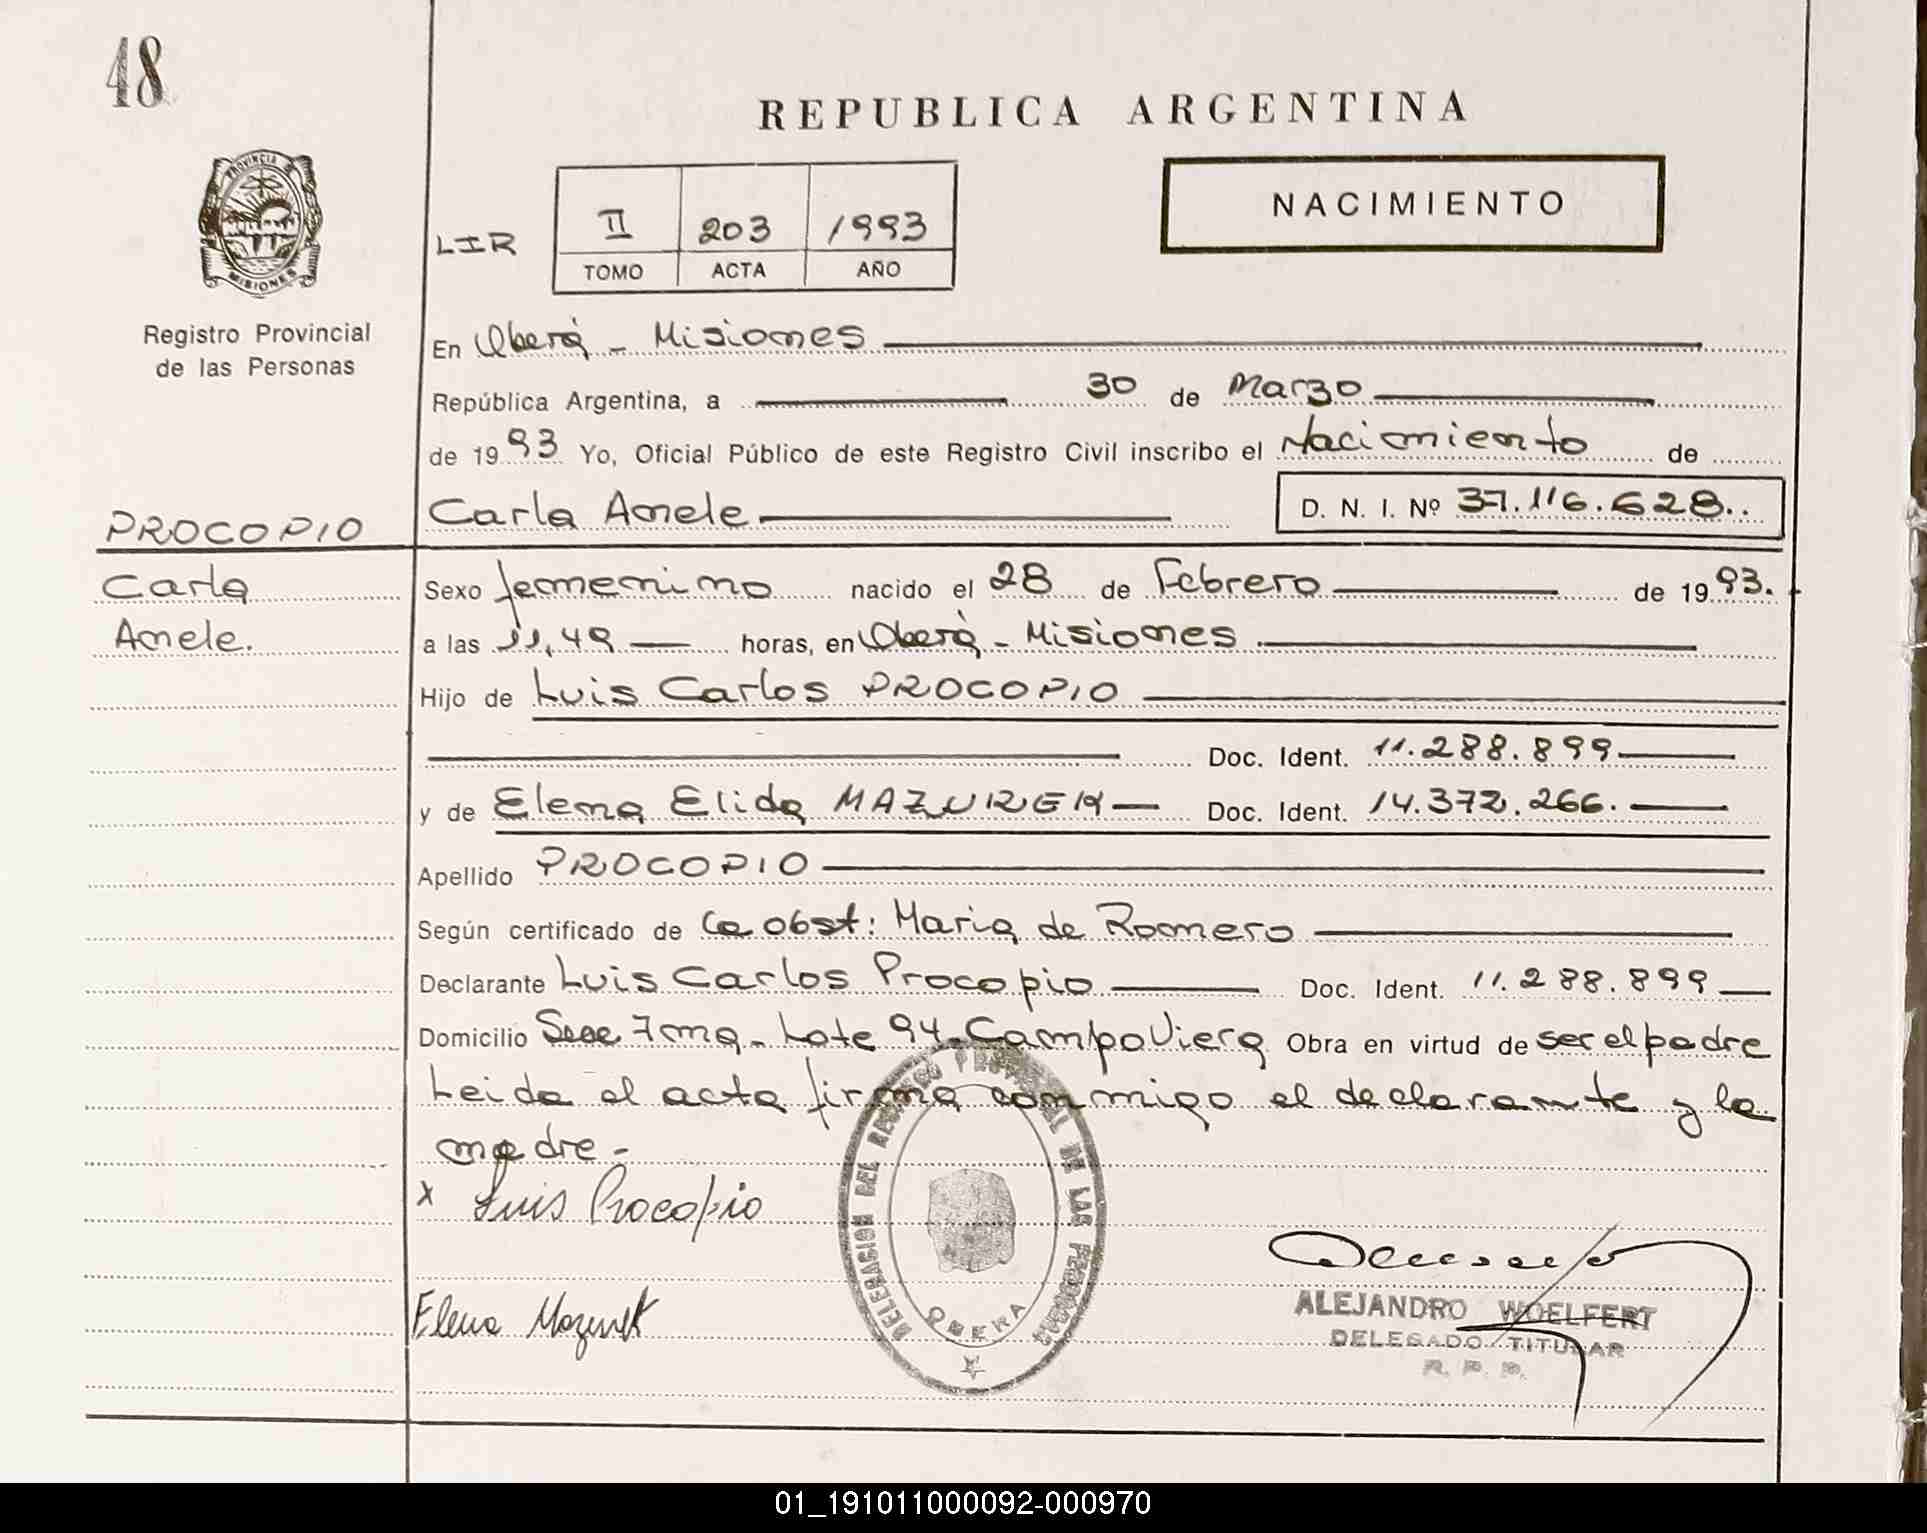 48
REPUBLICA ARGENTINA
PROVINCIA
MISIONES
NACIMIENTO
LIR II 203 1993
TOMO ACTA AÑO
Registro Provincial
de las Personas
En Oberá - Misiones
República Argentina, a 30 de Marzo
de 1993 Yo, Oficial Público de este Registro Civil inscribo el Nacimiento de
Carla Anele D. N. I. Nº 37.116.628..
PROCOPIO
Carla
Anele.
Sexo femenino nacido el 28 de Febrero de 1993.
a las 11,49 horas, en Oberá - Misiones
Hijo de Luis Carlos PROCOPIO
Doc. Ident. 11.288.899
y de Elena Elida MAZUREK Doc. Ident. 14.372.266.
Apellido PROCOPIO
Según certificado de la obst: Maria de Romero
Declarante Luis Carlos Procopio Doc. Ident. 11.288.899
Domicilio 7ma - Lote 94 - Campo Viera Obra en virtud de ser el padre
Leida el acta firma conmigo el declarante y la
madre -
x Luis Procopio
Elena Mazurek
DELEGACION DEL REGISTRO PROVINCIAL DE LAS PERSONAS
OBERA
ALEJANDRO WOELFERT
DELEGADO TITULAR
R. P. P.
01_191011000092-000970